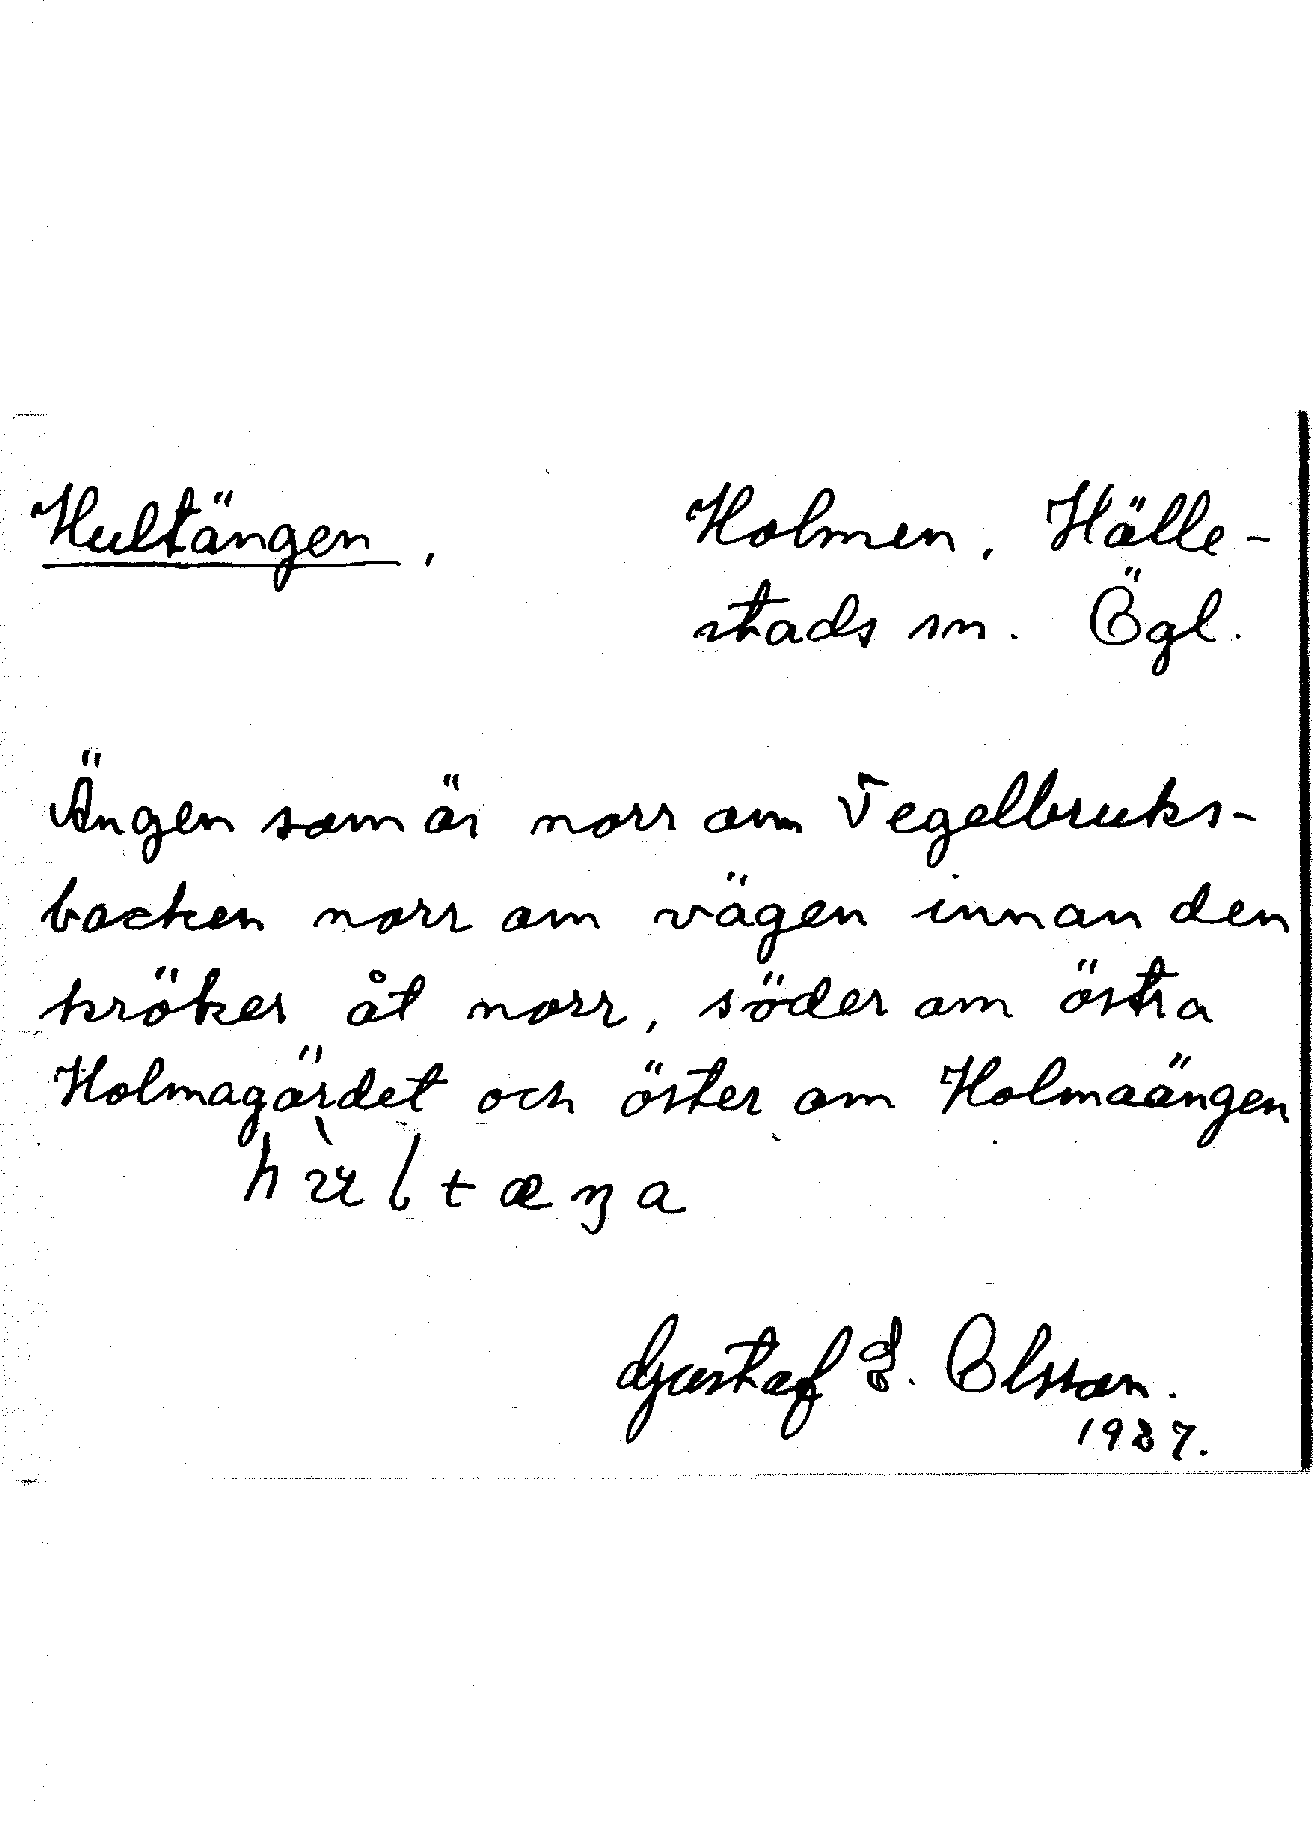 Hultängen, Holmen, Hälle-
stads sn. Ögl.
Ängen som är norr om Tegelbruks-
backen norr om vägen innan den
kröker åt norr, söder om östra
Holmagärdet och öster om Holmaängen
Gustaf E. Olsson.
1937.